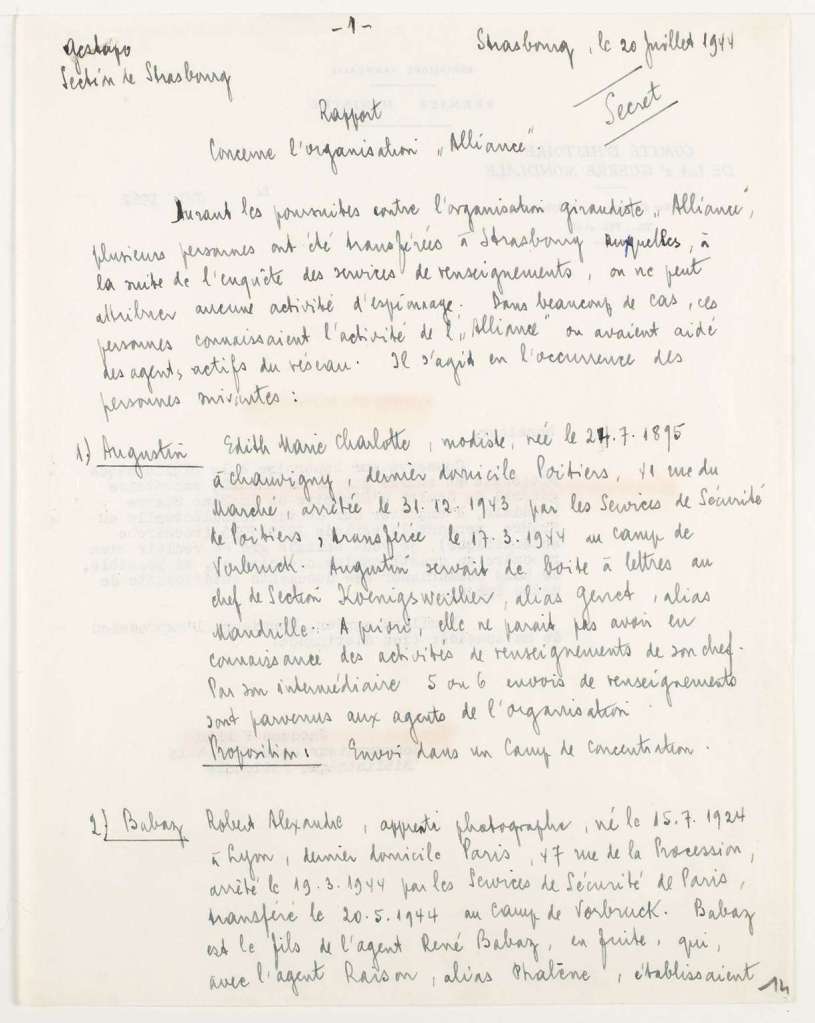 -1-
Gestapo
Strasbourg, le 20 Juillet 1944
Section de Strasbourg
Secret
Rapport
Concerne l'organisation „Alliance".
Durant les poursuites contre l'organisation giraudiste „Alliance",
plusieurs personnes ont été transférées à Strasbourg auxquelles, à
la suite de l'enquête des services de renseignements, on ne peut
attribuer aucune activité d'espionnage. Dans beaucoup de cas, ces
personnes connaissaient l'activité de l'„Alliance" ou avaient aidé
des agents actifs du réseau. Il s'agit en l'occurrence des
personnes suivantes :
1) Augustin Edith Marie Charlotte, modiste, née le 27.7.1895
à Chauvigny, dernier domicile Poitiers, 41 rue du
Marché, arrêtée le 31.12.1943 par les Services de Sécurité
de Poitiers, transférée le 17.3.1944 au camp de
Vorbruck. Augustin servait de boite à lettres au
chef de Section Koenigswerther, alias Genet, alias
Mandrille. A priori, elle ne parait pas avoir eu
connaissance des activités de renseignements de son chef.
Par son intermédiaire 5 ou 6 envois de renseignements
sont parvenus aux agents de l'organisation.
Proposition : Envoi dans un Camp de concentration.
2) Babaz Robert Alexandre, apprenti photographe, né le 15.7.1924
à Lyon, dernier domicile Paris, 47 rue de la Procession,
arrêté le 19.3.1944 par les Services de Sécurité de Paris,
transféré le 20.5.1944 au camp de Vorbruck. Babaz
est le fils de l'agent René Babaz, en fuite, qui,
avec l'agent Raison, alias Phalène, établissaient
14